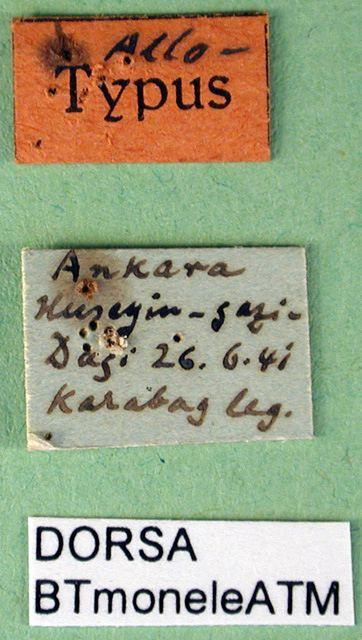 Allo-
Typus
Ankara
Huseyin-gazi-
Dagi 26. 6. 41
Karabag leg.
DORSA
BTmoneleATM